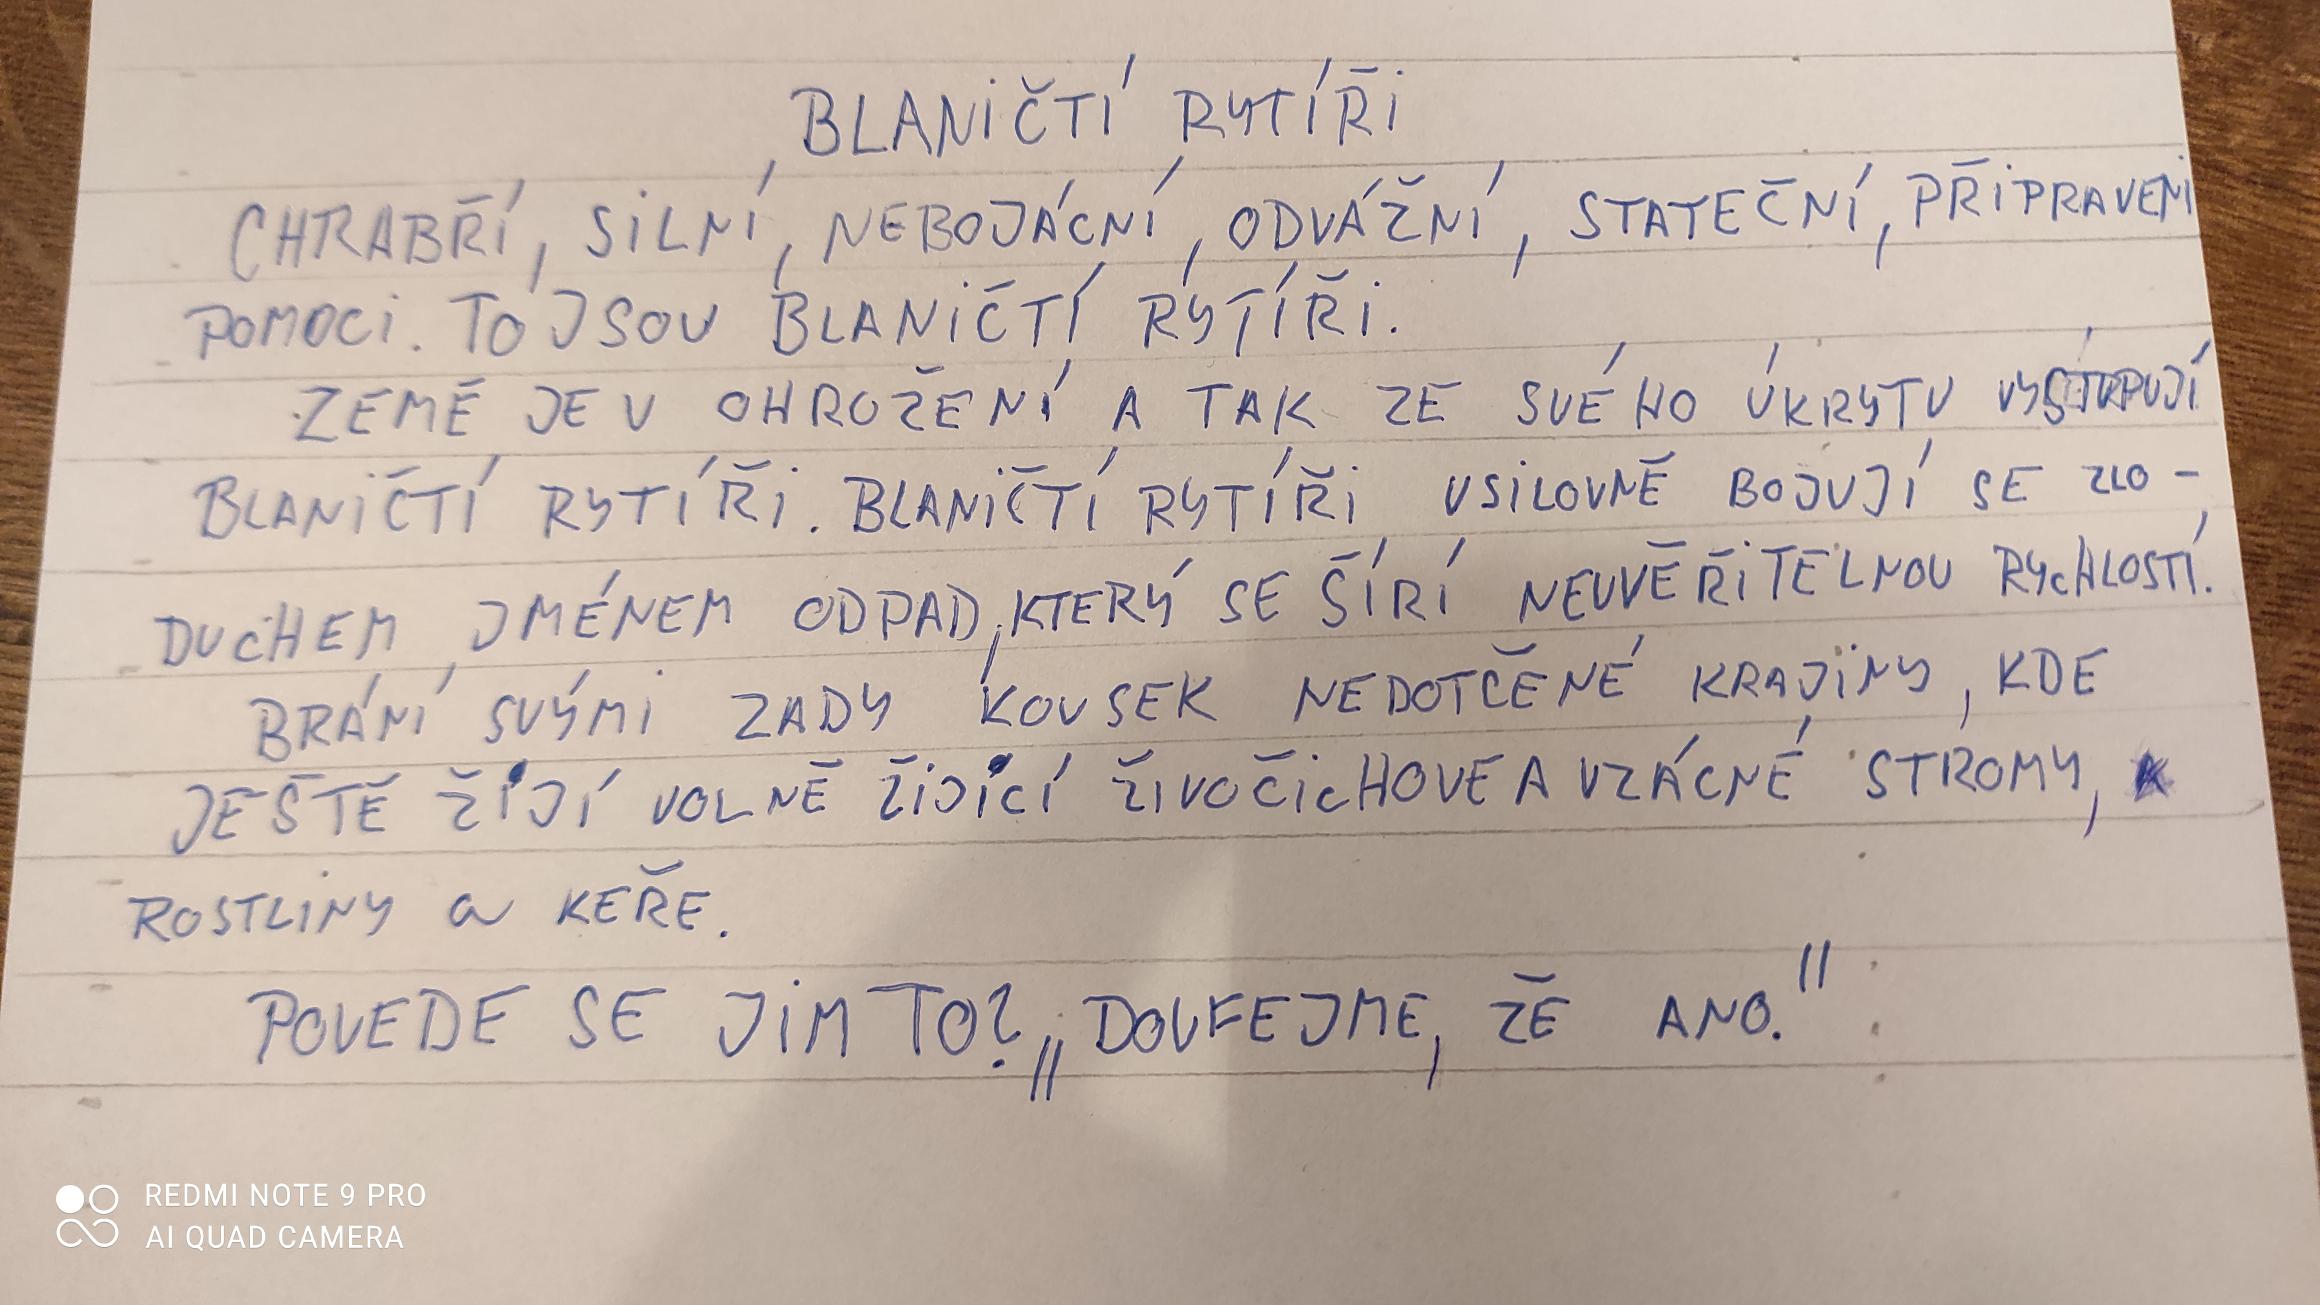 BLANIČTÍ RYTÍŘI
CHRABŘÍ, SILNÍ, NEBOJÁCNÍ, ODVÁŽNÍ, STATEČNÍ, PŘIPRAVENI
POMOCI. TO JSOU BLANIČTÍ RYTÍŘI.
ZEMĚ JE V OHROŽENÍ A TAK ZE SVÉHO ÚKRYTU VYSTUPUJÍ
BLANIČTÍ RYTÍŘI. BLANIČTÍ RYTÍŘI USILOVNĚ BOJUJÍ SE ZLO-
DUCHEM JMÉNEM ODPAD, KTERÝ SE ŠÍŘÍ NEUVĚŘITELNOU RYCHLOSTÍ.
BRÁNÍ SVÝMI ZADY KOUSEK NEDOTČENÉ KRAJINY, KDE
JEŠTĚ ŽIJÍ VOLNĚ ŽIJÍCÍ ŽIVOČICHOVÉ A VZÁCNÉ STROMY,
ROSTLINY a KEŘE.
POVEDE SE JIM TO? „DOUFEJME, ŽE ANO."
REDMI NOTE 9 PRO
AI QUAD CAMERA